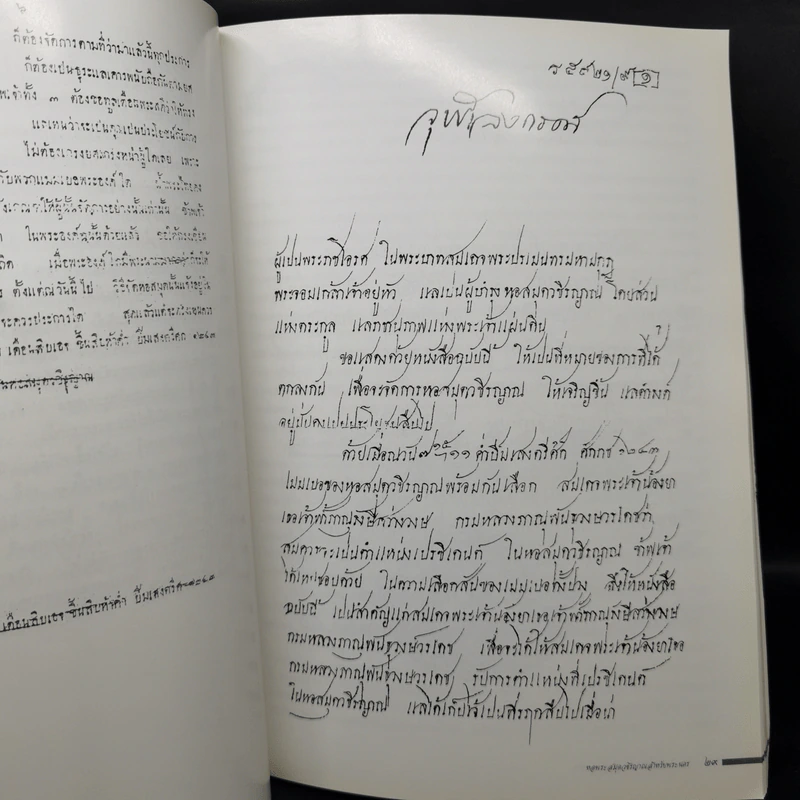 ก็ต้องจัดการตามที่ว่ามาแล้วนี้ทุกประการ
ก็ต้องเป็นธุระแลเคารพนับถือกันตามยศ
ทั้ง ๓ ต้องขอทูลเตือนพระสติว่าให้ทรง
แลเหนว่าจะเปนคุณเปนประโยชน์กับการ
ไม่ต้องเกรงยศเกรงหน้าผู้ใดเลย เพราะ
กับพวกแมมเบอพระองค์ใด
ให้ผู้นั้นจัดการอย่างนั้นเท่านั้น ข้าพเจ้า
ในพระองค์ผู้นั้นด้วยแล้ว ขอให้ทรงเตือน
เมื่อพระองค์ใดมีพระนาม
ตั้งแต่ณวันนี้ไป วิธีจัดหอสมุดนั้นแจ้งอยู่ใน
ควรประการใด สุดแล้วแต่จะทรงเหนควร
เดือนสิบเอจ ขึ้นสิบห้าค่ำ ปีมเสงตรีศก ๑๒๔๓
หอสมุดวชิรญาณ
เดือนสิบเอจ ขึ้นสิบห้าค่ำ ปีมเสงตรีศก ๑๒๔๓
ที่ ๕๙๒๑/๙ [๑]
จุฬาลงกรณ์
ผู้เปนพระราชโอรส ในพระบาทสมเดจพระปรเมนทรมหามกุฎ
พระจอมเกล้าเจ้าอยู่หัว แลเปนผู้บำรุงหอสมุดวชิรญาณ โดยส่วน
แห่งตระกูล แลราชานุภาพแห่งพระเจ้าแผ่นดิน
ขอแสดงด้วยหนังสือฉบับนี้ ให้เปนที่หมายของการที่ได้
ตกลงกัน เพื่อจะจัดการหอสมุดวชิรญาณ ให้เจริญขึ้น แลดำรงค์
อยู่มั่นคงเปนประโยชนสืบไป
ด้วยเมื่อณวัน ๗ ๑๕ฯ ๑๑ ค่ำปีมเสงตรีศก ศักราช ๑๒๔๓
เมมเบอของหอสมุดวชิรญาณพร้อมกันเลือก สมเดจพระเจ้าน้องยา
เธอเจ้าฟ้าภาณุรังษีสว่างวงษ กรมหลวงภาณุพันธุวงษวรเดชว่า
สมควรจะเปนตำแหน่งเปรซิเดนต์ ในหอสมุดวชิรญาณ ข้าพเจ้า
ได้เหนชอบด้วย ในความเลือกสันของเมมเบอทั้งปวง จึ่งให้หนังสือ
ฉบับนี้ เปนสำคัญแก่สมเดจพระเจ้าน้องยาเธอเจ้าฟ้าภาณุรังษีสว่างวงษ
กรมหลวงภาณุพันธุวงษวรเดช เพื่อจะได้ให้สมเดจพระเจ้าน้องยาเธอ
กรมหลวงภาณุพันธุวงษวรเดช รับการตำแหน่งที่เปรซิเดนต์
ในหอสมุดวชิรญาณ แลได้เกบไว้เปนที่รฦกสืบไปเมื่อน่า
หอพระสมุดวชิรญาณสำหรับพระนคร ๒๙